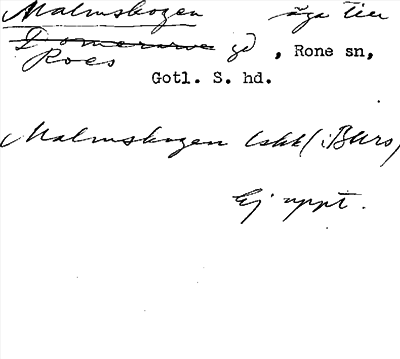 Malmskogen äga till
Domerarve gd, Rone sn,
Roes
Gotl. S. hd.
Malmskogen lskt (Burs)
Ej uppt.